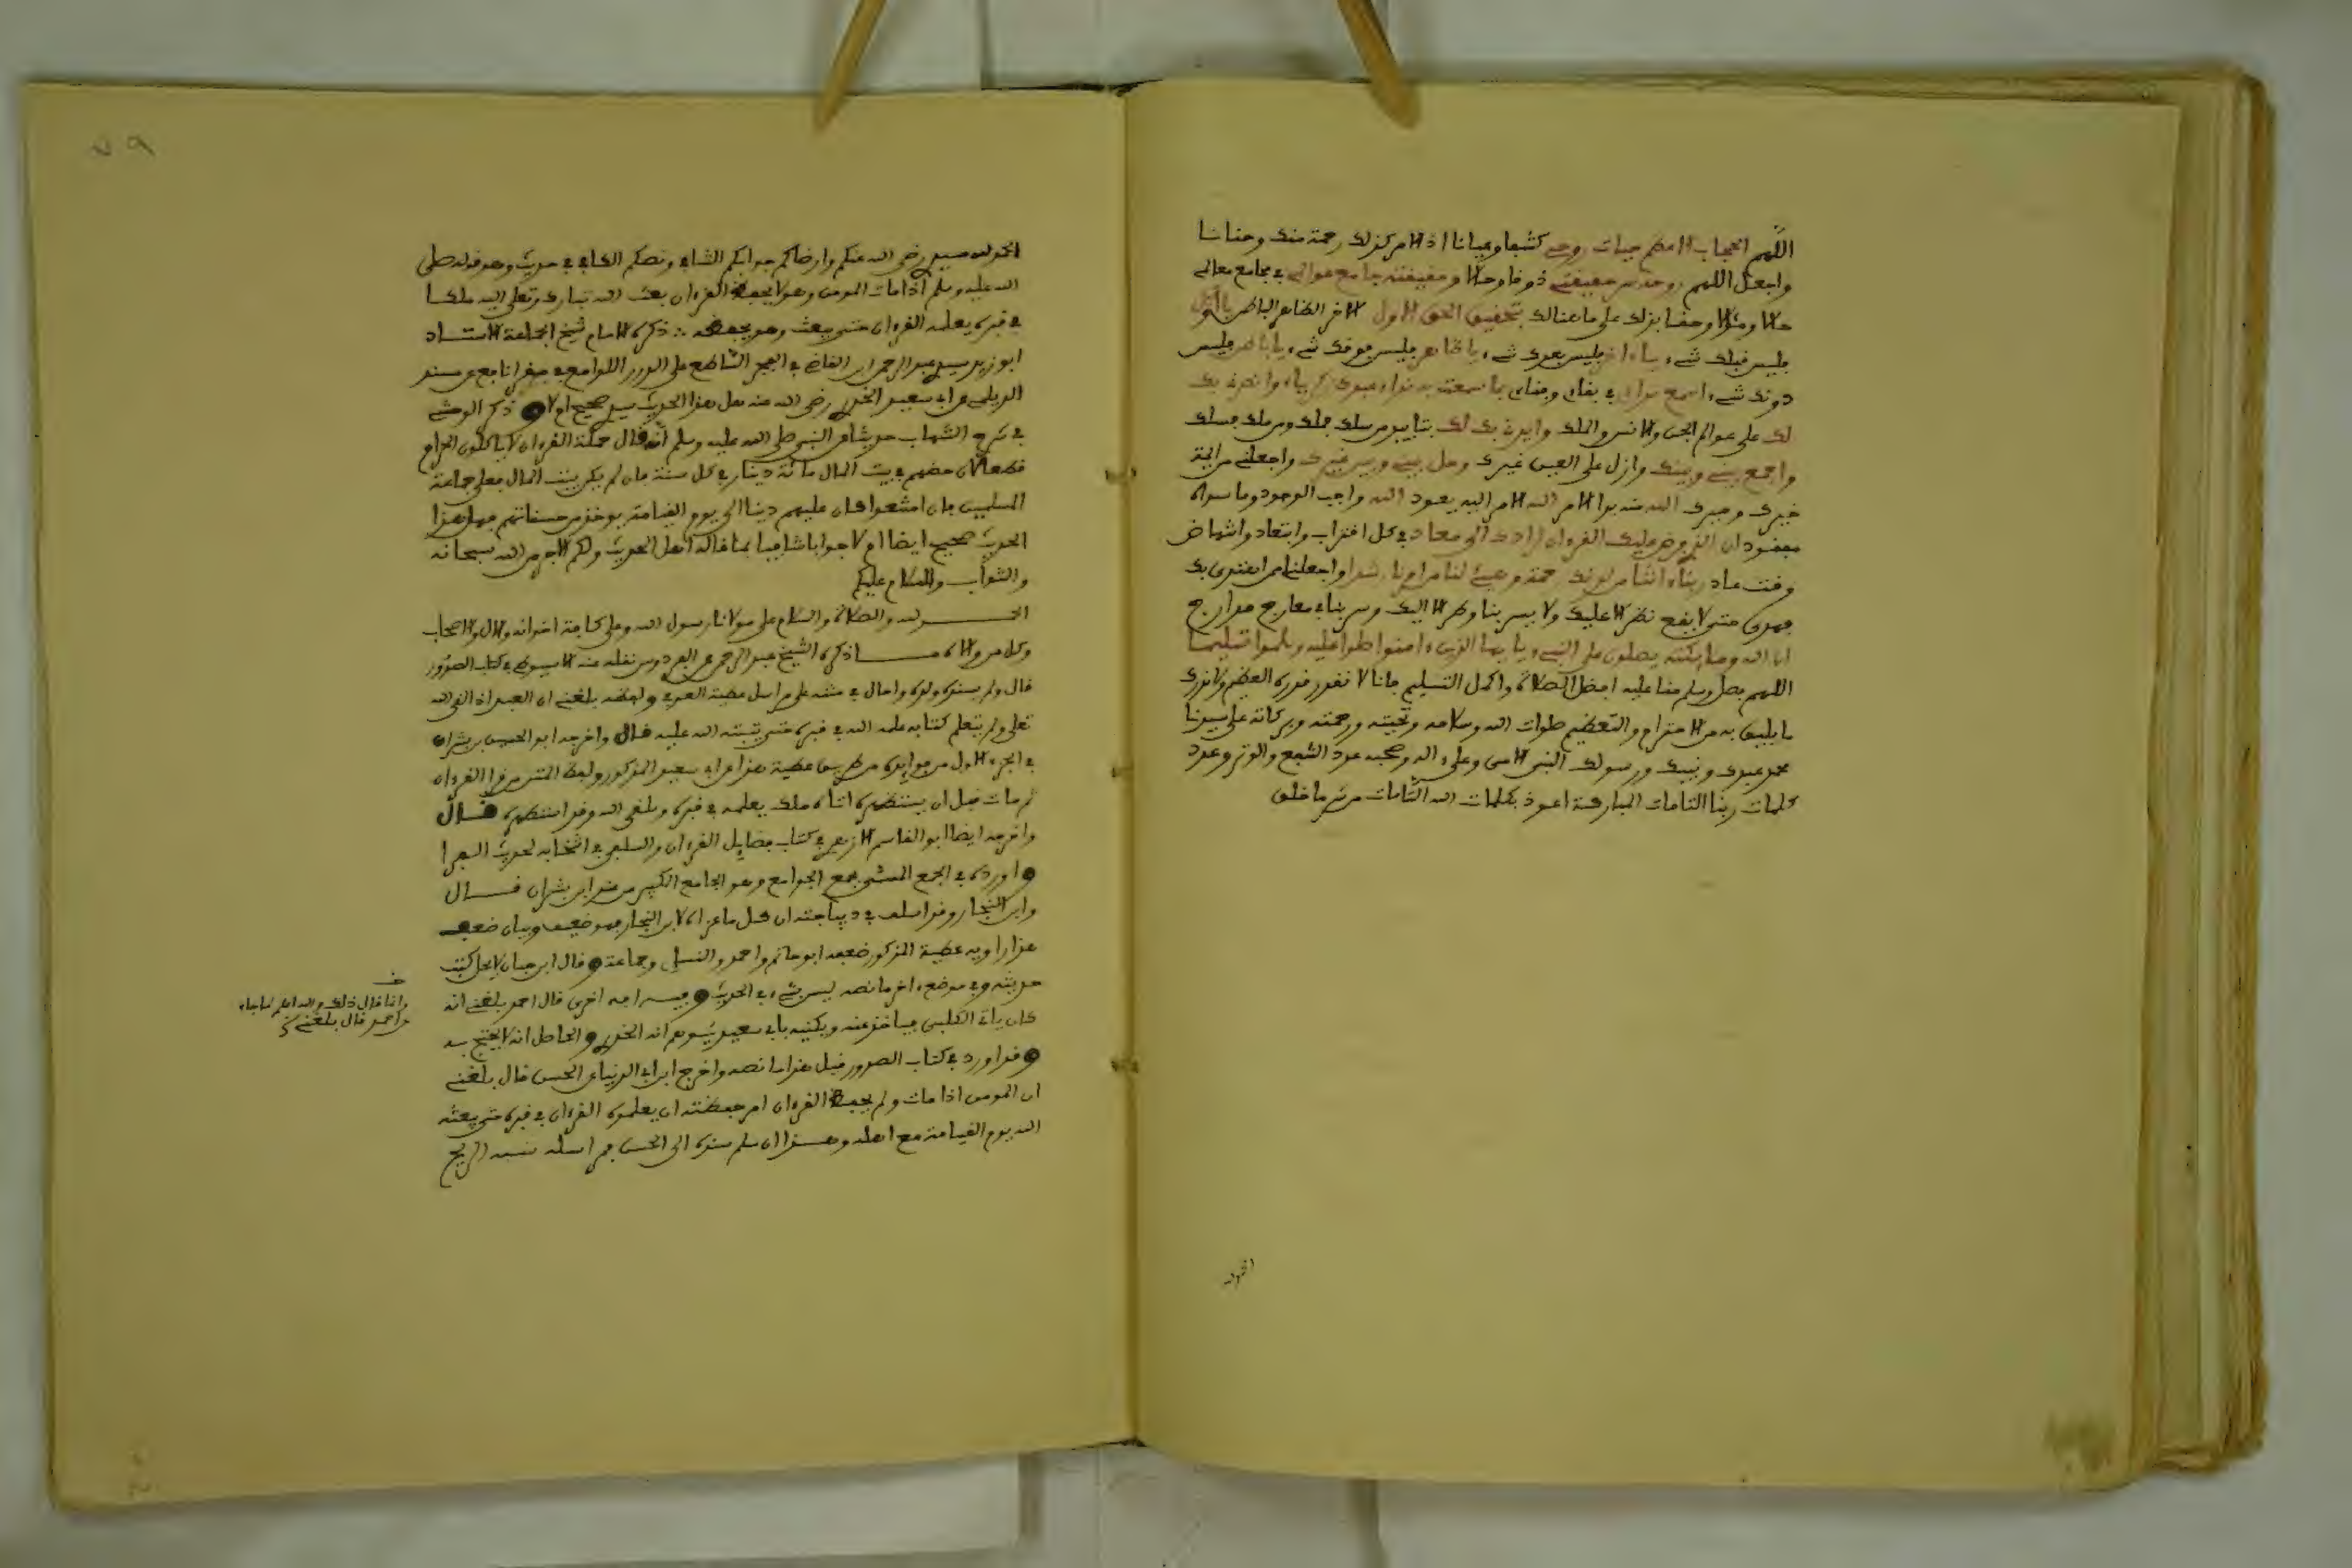 اللهم الحجاب الاعظم حيات روحي كشفا وعيانا اذ الامر كذلك رحمة منك وحنانا
واجعل اللهم روحه سر حقيقتي ذوقا وحالا وحقيقته جامع عوالمي في مجامع معالمي
حالا ومئالا وحققنا بذلك على ما هنالك بتحقيق الحق الاول الاخر الظاهر الباطن يا اول
فليس قبلك شيء يا ءاخر فليس بعدك شيء يا ظاهر فليس فوقك شيء يا باطن فليس
دونك شيء اسمع نداءي في بقاءي وفناءي بما سمعت به نداء عبدك زكرياء وانصرني بك
لك على عوالم الجن والانس والملك وايدني بك لك بتاييد من سلك فملك ومن ملك فسلك
واجمع بيني وبينك وازل على العين غينك وحل بيني وبين غيرك واجعلني من ائمة
خيرك وميرك الله منه بدا الامر الله الامر اليه يعود الله واجب الوجود وما سواه
مفقود ان الذي فرض عليك القرءان لرادك الى معاد في كل اقتراب وابتعاد وانتهاض
واقتعاد ربنا ءاتنا من لدنك رحمة وهيئ لنا من امرنا رشدا واجعلنا ممن اهتدى بك
فهدى حتى لا يقع نظر الا عليك ولا يسير بنا وطر الا اليك وسر بنا في معارج مدارج
ان الله وملايكته يصلون على النبيء يا يها الذين ءامنوا صلوا عليه وسلموا تسليما
اللهم فصل وسلم منا عليه افضل الصلاة واكمل التسليم فانا لا نقدر قدره العظيم ولا ندرك
ما يليق به من الاحترام والتعظيم صلوات الله وسلامه وتحيته ورحمته وبركاته على سيدنا
محمد عبدك ونبيك ورسولك النبي الامي وعلى ءاله وصحبه عدد الشفع والوتر وعدد
كلمات ربنا التامات المباركة اعوذ بكلمات الله التامات من شر ما خلق
الحمد لله
٧٩
الحمد لله سيدي رضي الله عنكم وارضاكم جوابكم الشافي ونصكم الكافي في حديث وهو قوله صلى
الله عليه وسلم اذا مات المومن وهو لا يحفظ القرءان بعث الله تبارك وتعلى اليه ملكا
في قبره يعلمه القرءان حتى يبعث وهو يحفظه ∴ ذكره الامام شيخ الجماعة الاستاد
ابو زيد سيدي عبد الرحمن ابن القاضي في الفجر الساطع على الدرر اللوامع في مقرإ نافع عن مسند
الديلمي عن ابي سعيد الخدري رضي الله عنه هل هذا الحديث سيدي صحيح ام لا وذكر الوحشي
في شرح الشهاب حديثا عن النبي صلى الله عليه وسلم انه قال حملة القرءان لا ياكلون الحرام
قطعا لان حضهم في بيت المال مائة دينار في كل سنة فان لم يكن بيت المال فعلى جماعة
المسلمين فان امتنعوا كان عليهم دينا الى يوم القيامة يوخذ من حسناتهم فهل هذا
الحديث صحيح ايضا ام لا جوابا شافيا بما قاله اهل الحديث ولكم الاجر من الله سبحانه
والثواب والسلام عليكم
الحمد لله والصلاة والسلام على مولانا رسول الله وعلى كافة اخوانه والال والاصحاب
وكل من والاه ما ذكره الشيخ عبد الرحمن عن الفردوس نقله عنه الاسيوطي في كتاب الصدور
قال ولم يسنده ولده واحال في مثله على مراسل عطية العوفي ولفظه بلغني ان العبد اذا لقي الله
تعلى ولم يتعلم كتابه علمه الله في قبره حتى يثبته الله عليه قال واخرجه ابو الحسين بن بشران
في الجزء الاول من فوايده من طريق عطية هذا عن ابي سعيد المذكور ولفظ المتن من قرا القرءان
ثم مات قبل ان يستظهره اتاه ملك يعلمه في قبره ويلقى الله وقد استظهره قال
واخرجه ايضا ابو القاسم الازهري في كتاب فضايل القرءان والسلفي في انتخابه لحديث الفرا
واورده في الجمع المسمى بجمع الجوامع وهو الجامع الكبير من عند ابن بشران قال
وابن النجار وقد اسلف في ديباجته ان كل ما عزاه لابن النجار فهو ضعيف وبيان ضعف
هذا راويه عطية المذكور ضعفه ابو حاتم واحمد والنسائي وجماعة وقال ابن حبان لا يحل كتب
حديثه وفي موضع ءاخر ما نصه ليس بشيء في الحديث وفيه اخرى قال احمد بلغني انه
كان ياتي الكلبي فياخذ عنه ويكنيه بابي سعيد يوهم انه الخدري والحاصل انه لا يحتج به
وقد اورد في كتاب الصدور قبل هذا ما نصه واخرج ابن ابي الدنيا عن الحسن قال بلغني
ان المومن اذا مات ولم يحفظ القرءان امر حفظته ان يعلموه القرءان في قبره حتى يبعثه
الله يوم القيامة مع اهله وهذا ان سلم سنده الى الحسن فمراسله شبه الريح
وانما قال ذلك والله اعلم لما جاء
احمد قال بلغني